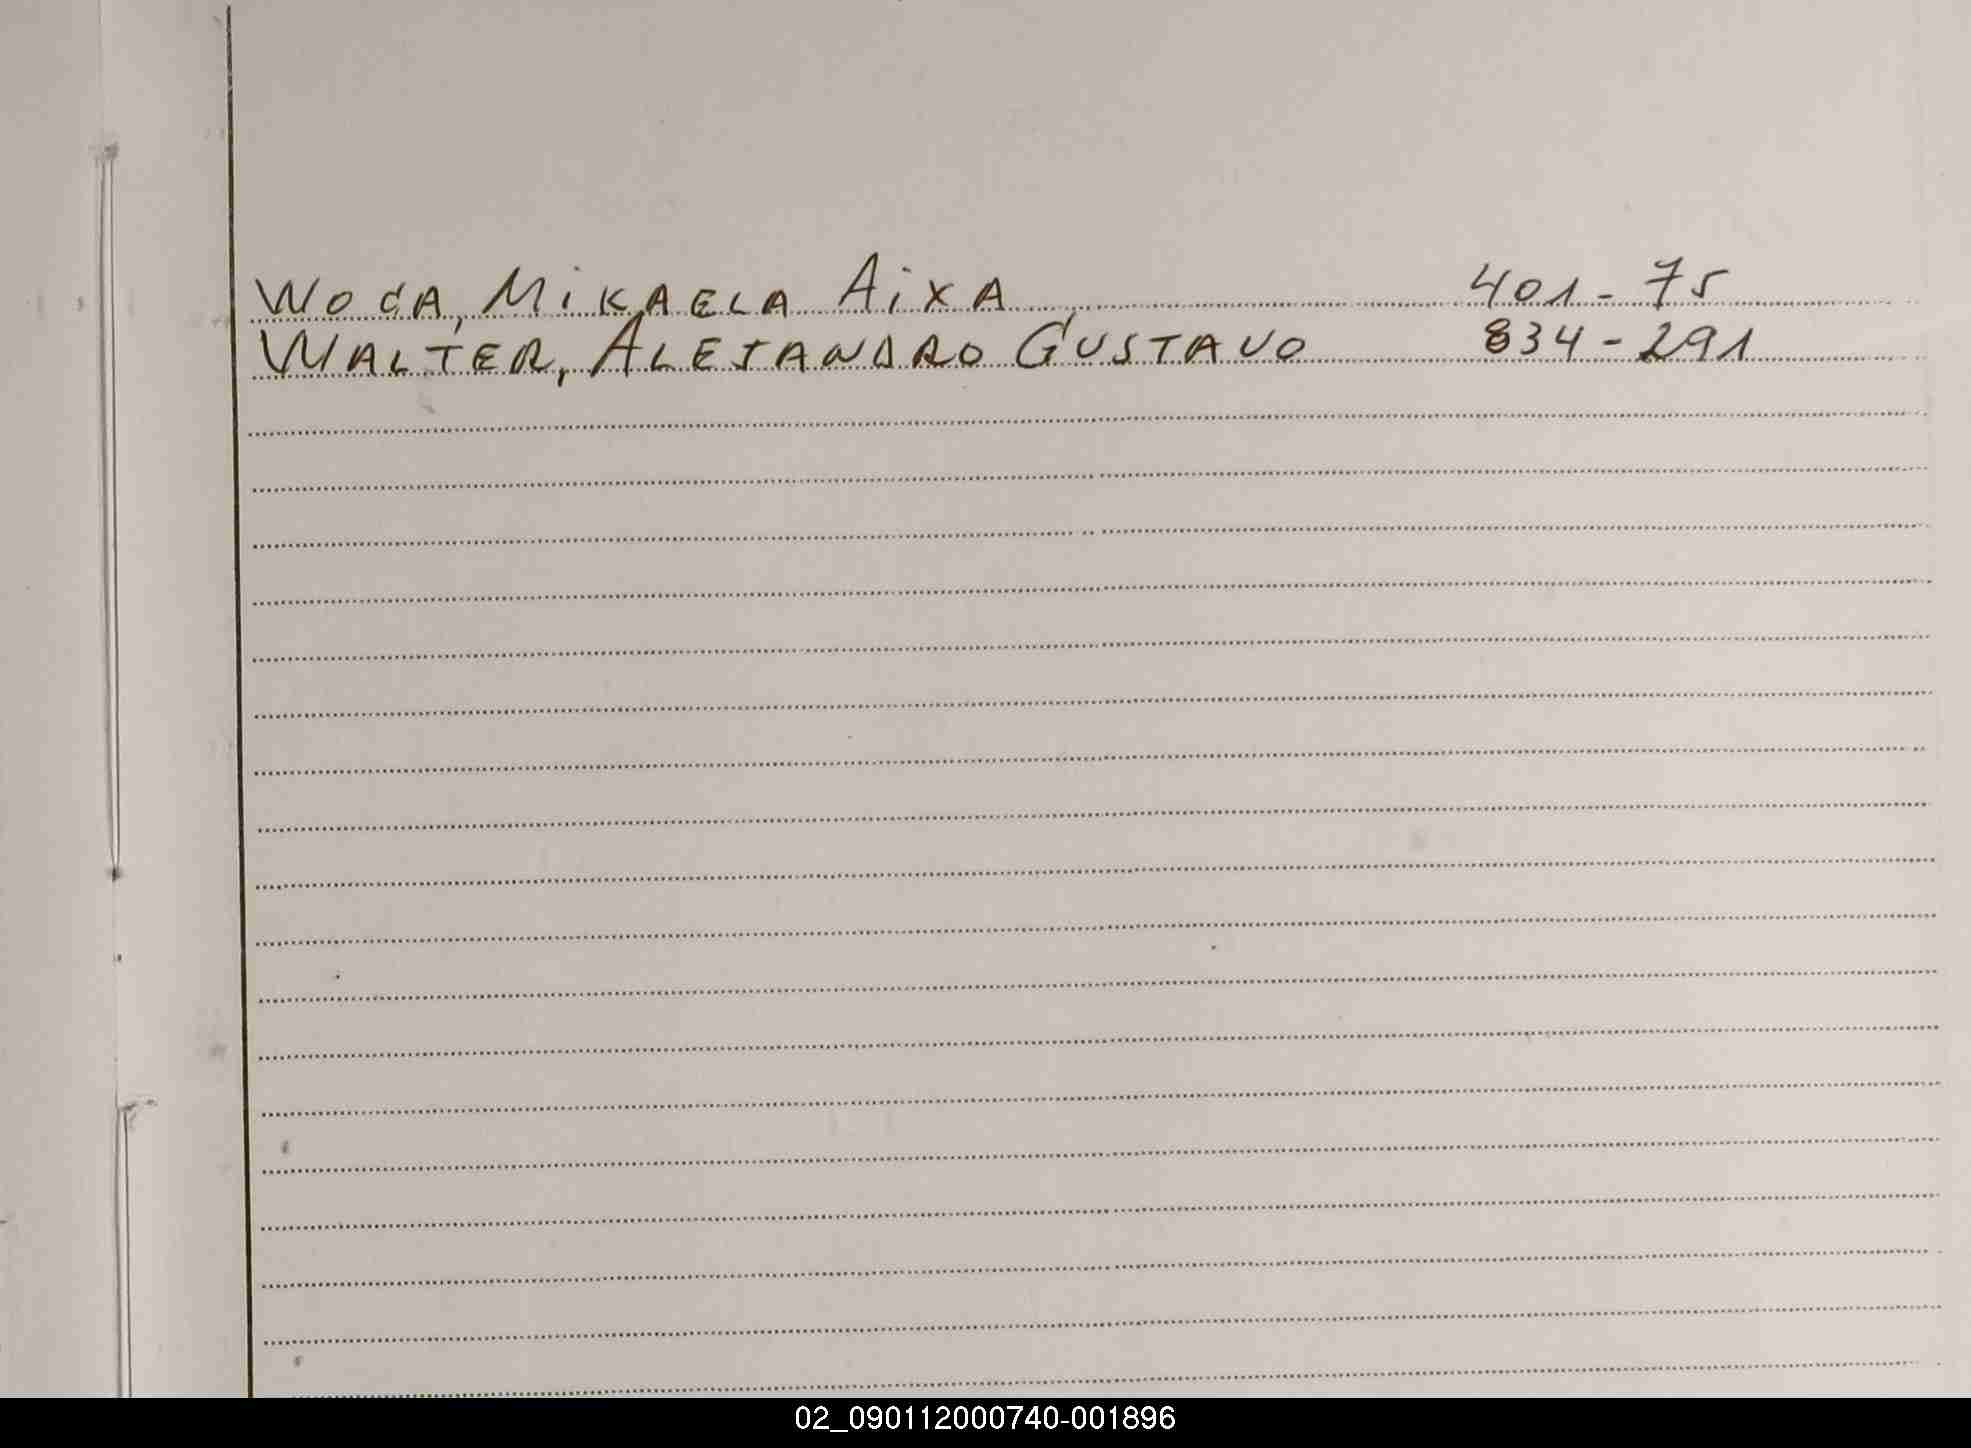 WOCA, MIKAELA AIXA 401-75
WALTER, ALEJANDRO GUSTAVO 834-291
02_090112000740-001896